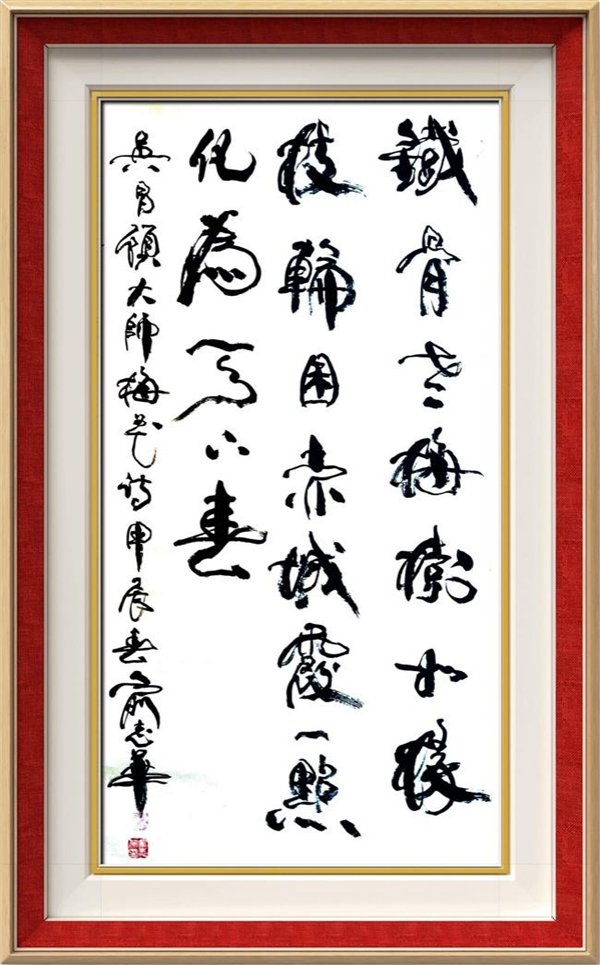 鐵骨老梅樹如
枝輪囷赤城霞一點
化為天下春
吳昌碩大師梅花詩甲辰春俞志華